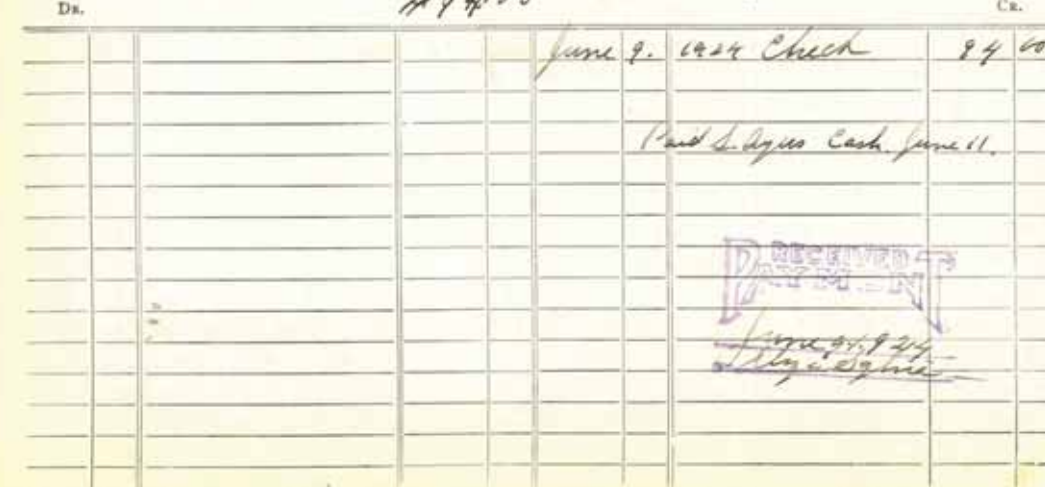 Dr.
Cr.
June 9. 1924 Check 94 00
Paid S. Agus Cash. June 11.
RECEIVED
PAYMENT
June 9, 1924